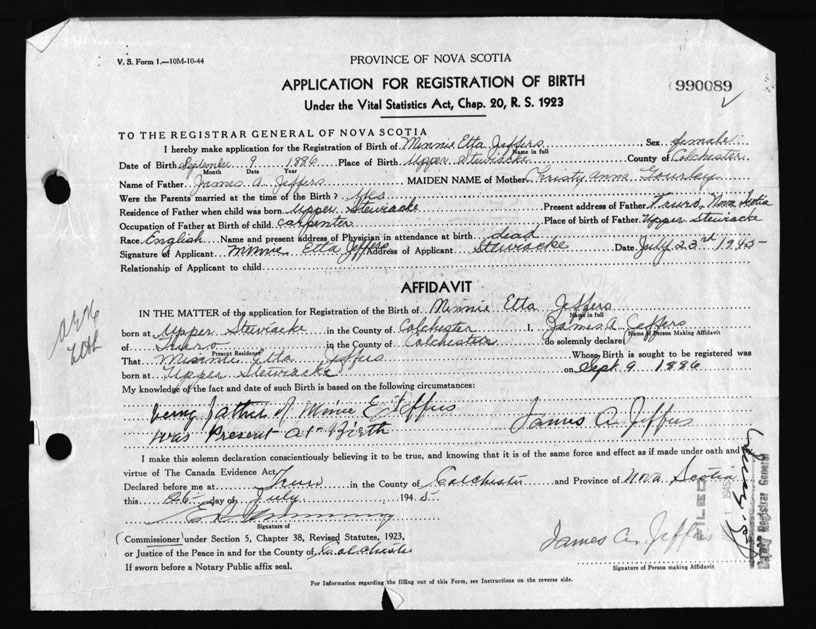 V. S. Form 1.—10M-10-44
PROVINCE OF NOVA SCOTIA
APPLICATION FOR REGISTRATION OF BIRTH
990089
Under the Vital Statistics Act, Chap. 20, R. S. 1923
TO THE REGISTRAR GENERAL OF NOVA SCOTIA
I hereby make application for the Registration of Birth of Minnie Etta Jeffers Sex female
Name in full
Date of Birth September 9 1886 Place of Birth Upper Stewiacke County of Colchester
Month Date Year
Name of Father James A. Jeffers MAIDEN NAME of Mother Christy Anna Gourley
Were the Parents married at the time of the Birth? Yes
Residence of Father when child was born Upper Stewiacke Present address of Father Truro, Nova Scotia
Occupation of Father at Birth of child carpenter Place of birth of Father Upper Stewiacke
Race English Name and present address of Physician in attendance at birth dead
Signature of Applicant Minnie Etta Jeffers Address of Applicant Stewiacke Date July 23rd 1945
Relationship of Applicant to child
AFFIDAVIT
IN THE MATTER of the application for Registration of the Birth of Minnie Etta Jeffers
Name in full
born at Upper Stewiacke in the County of Colchester I, James A Jeffers
Name of Person Making Affidavit
of Truro in the County of Colchester do solemnly declare
Present Residence
That Minnie Etta Jeffers Whose Birth is sought to be registered was
born at Upper Stewiacke on Sept 9 1886
My knowledge of the fact and date of such Birth is based on the following circumstances:
being father of Minie E Jeffers
was Present at Birth James A. Jeffers
I make this solemn declaration conscientiously believing it to be true, and knowing that it is of the same force and effect as if made under oath and by
virtue of The Canada Evidence Act.
Declared before me at Truro in the County of Colchester and Province of Nova Scotia
this 26 day of July 1945.
Signature of
James A. Jeffers
(Commissioner) under Section 5, Chapter 38, Revised Statutes, 1923,
or Justice of the Peace in and for the County of Colchester
If sworn before a Notary Public affix seal.
Signature of Person making Affidavit
For Information regarding the filling out of this Form, see Instructions on the reverse side.
FILED
Deputy Registrar General